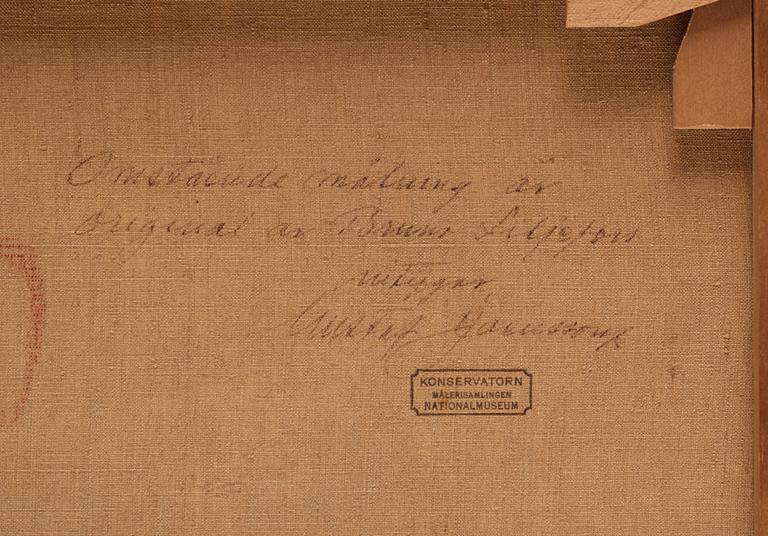 Omstående målning är
original av Bruno Liljefors
intygar
Gustaf
KONSERVATORN
MÅLERISAMLINGEN
NATIONALMUSEUM